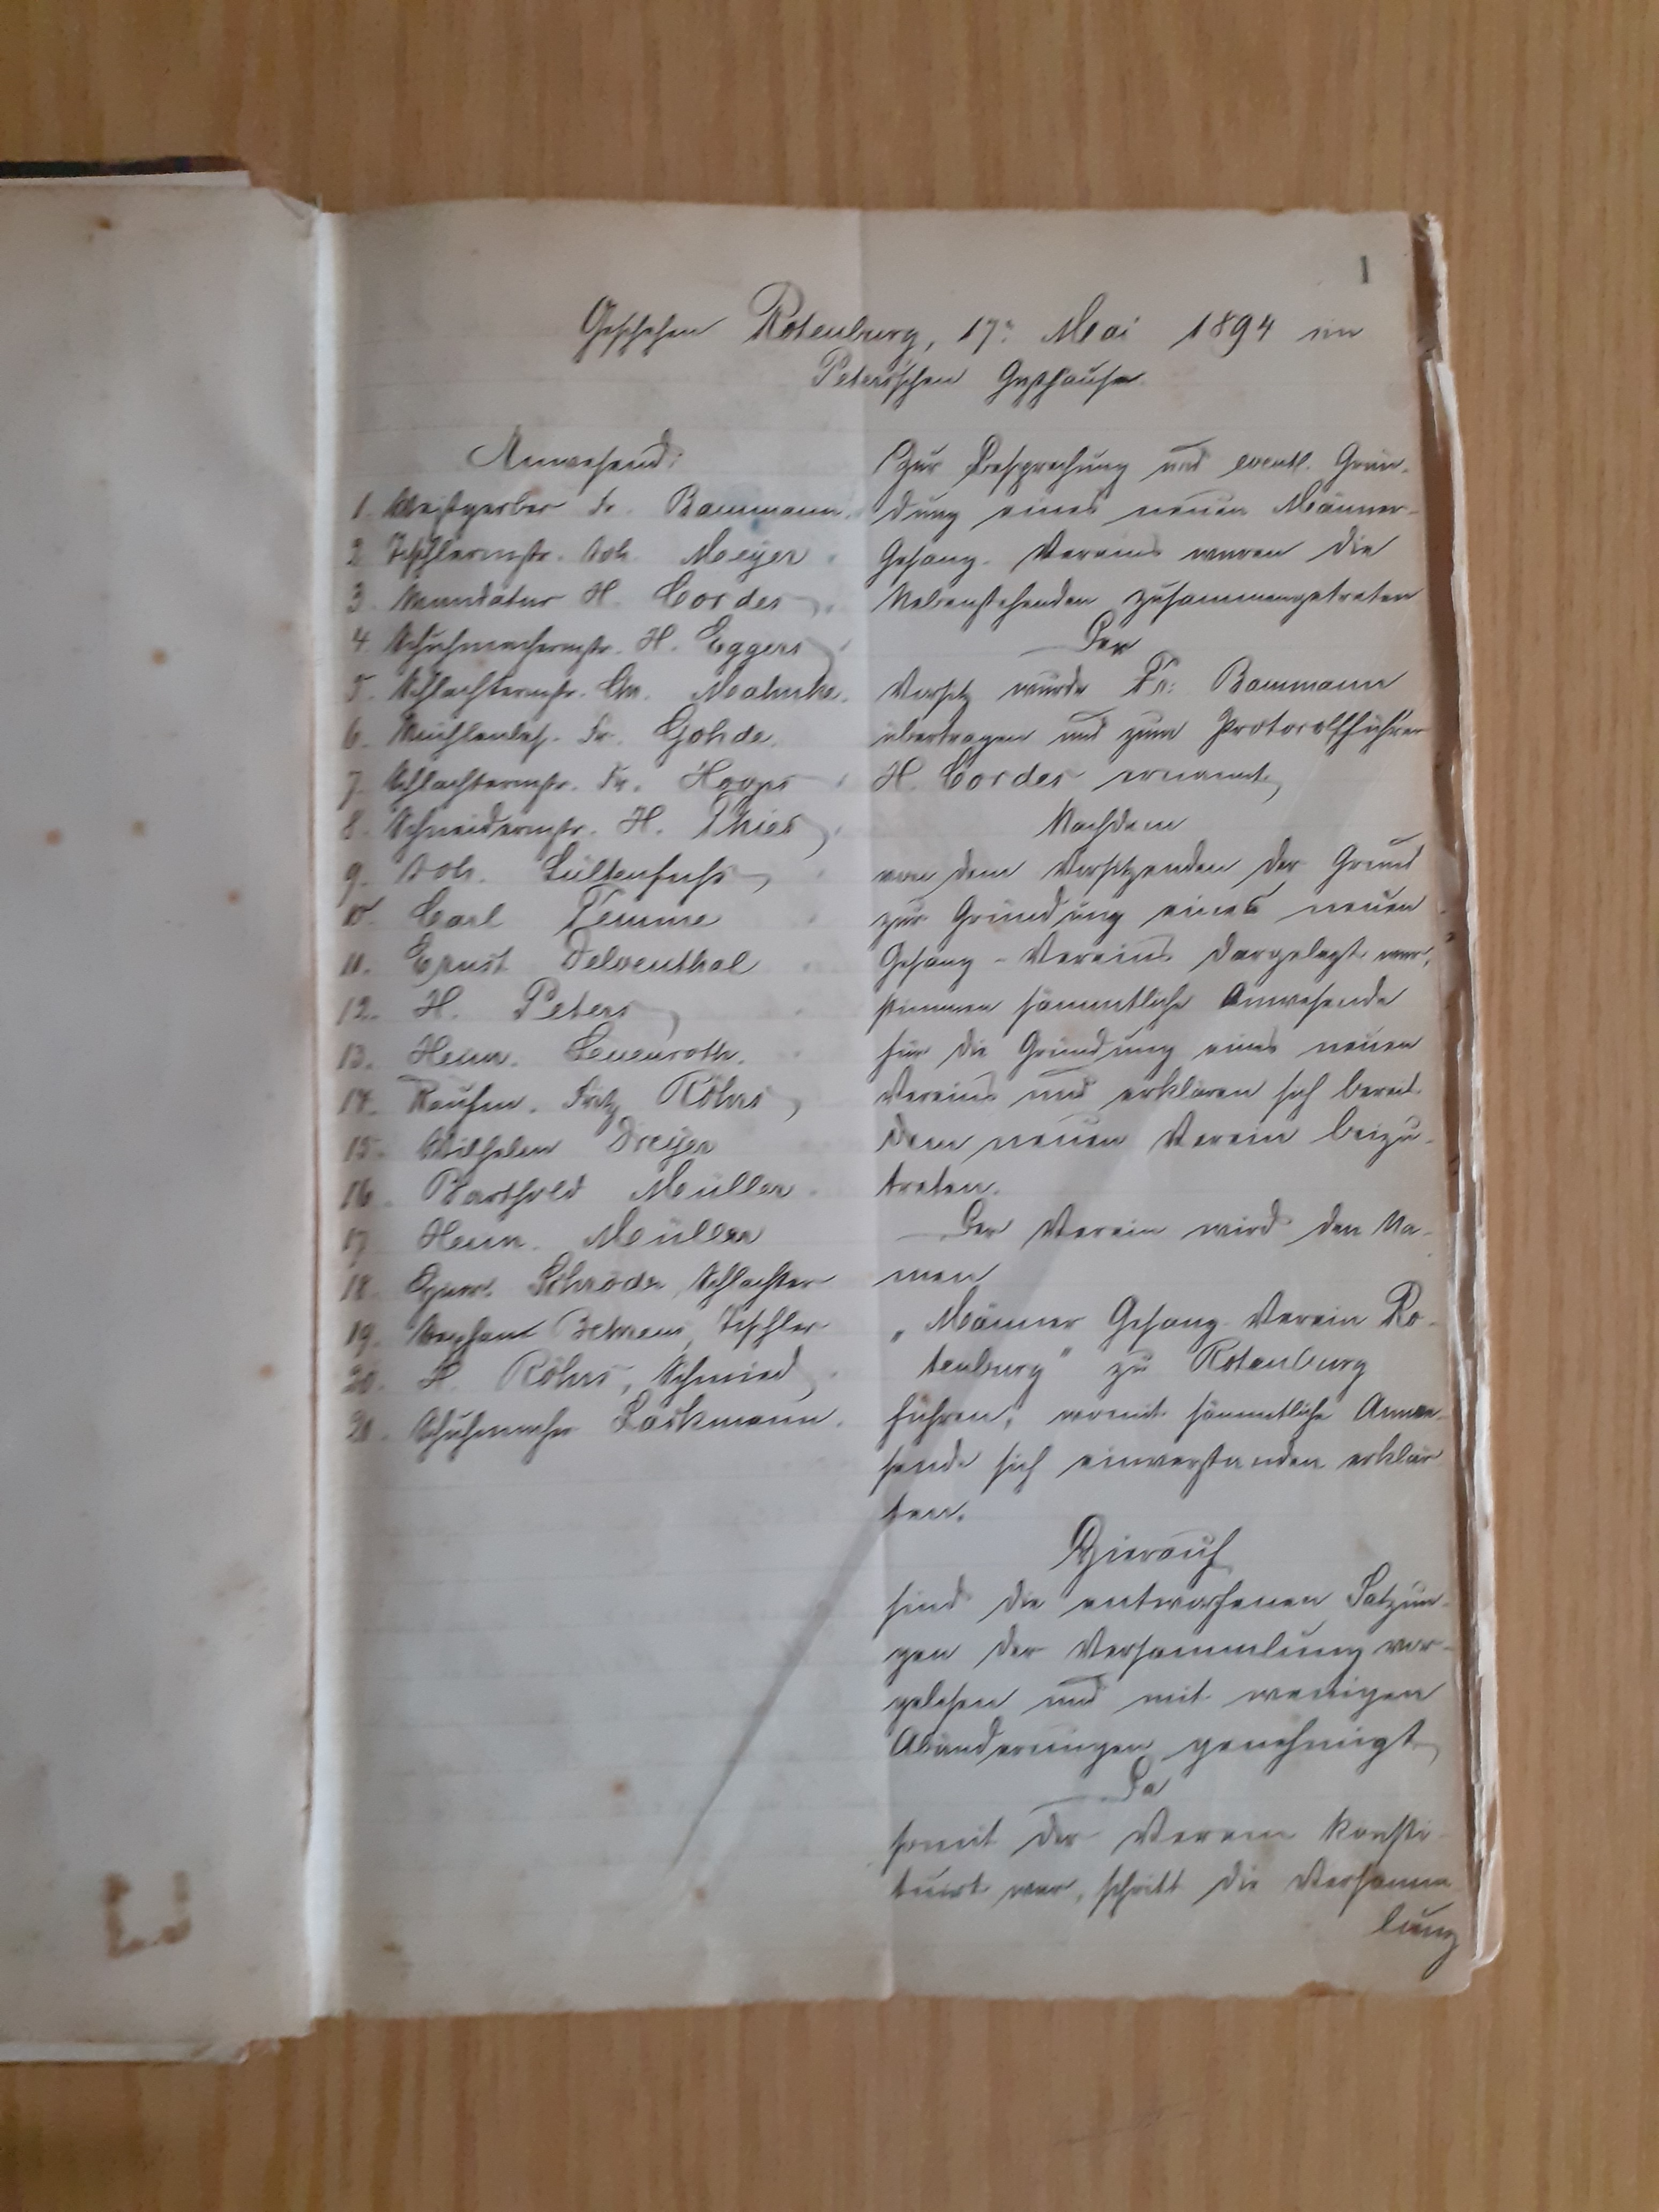 1
Geschehen Rotenburg, 17. Mai 1894 im
Peters'schen Gasthause.
Anwesend:
1. Weißgerber Fr. Bammann.
2. Tischlermstr. Joh. Meyer
3. Mandatar H. Cordes
4. Schuhmachermstr. H. Eggers
5. Schlachtermstr. Chr. Mahnke.
6. Mühlenbes. Fr. Gohde.
7. Schlachtermstr. Fr. Hoops
8. Schneidermstr. H. Thies
9. Joh. Lültenfuchs
10. Carl Temme
11. Ernst Delventhal
12. H. Peters
13. Heinr. Leuenroth.
14. Kaufm. Fritz Röhrs
15. Wilhelm Dreyer
16. Barthold Müller
17. Heinr. Müller
18. Schröder, Schlachter
19. Behrens, Tischler
20. H. Röhrs, Schmied
21. Schuhmacher Lackmann.
Zur Besprechung und eventl. Grün-
dung eines neuen Männer-
Gesang-Vereins waren die
Nebenstehenden zusammengetreten
Der
Vorsitz wurde Fr. Bammann
übertragen und zum Protocollführer
H. Cordes ernannt,
Nachdem
von dem Vorsitzenden der Grund
zur Gründung eines neuen
Gesang-Vereins dargelegt war,
stimmen sämmtliche Anwesende
für die Gründung eines neuen
Vereins und erklären sich bereit
dem neuen Verein beizu-
treten.
Der Verein wird den Na-
men
„Männer Gesang-Verein Ro-
tenburg" zu Rotenburg
führen, womit sämmtliche Anwe-
sende sich einverstanden erklär
ten.
Hierauf
sind die entworfenen Satzun-
gen der Versammlung vor-
gelesen und mit wenigen
Abänderungen genehmigt
Da
somit der Verein konsti-
tuirt war, schritt die Versamm
lung